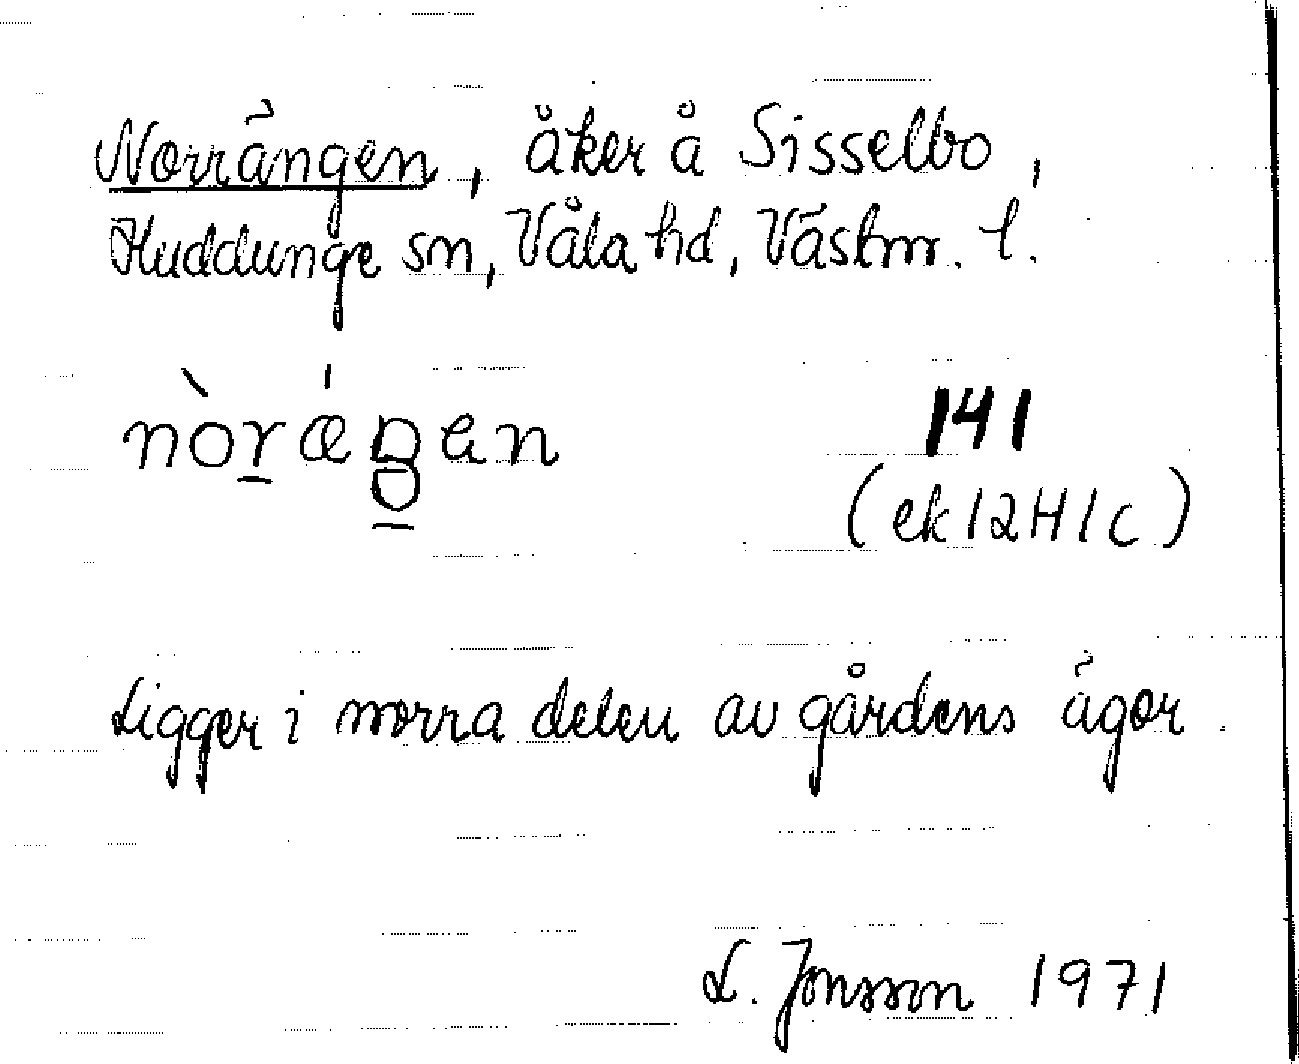 Norrängen, åker å Sisselbo,
Huddunge sn, Våla hd, Västm. l.
141
(ek 12H1c)
Ligger i norra delen av gårdens ägor.
L. Jonsson 1971